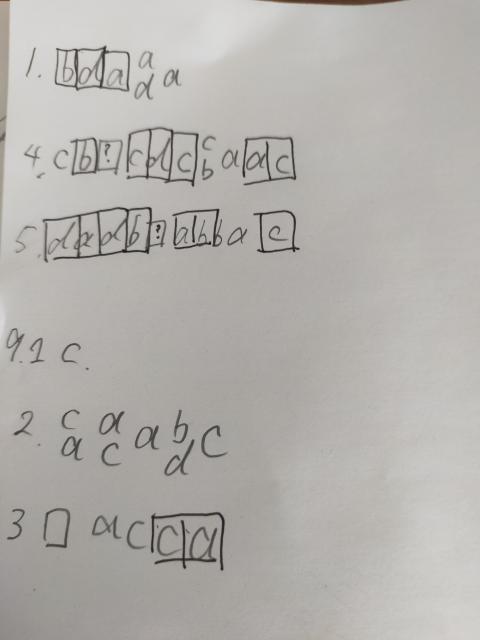 1. b d a a d a
4. c b ? c d c c b a a c
5. d a d b ? a b b a c
9.1 c.
2. c a a c a b d c
3 a c c a